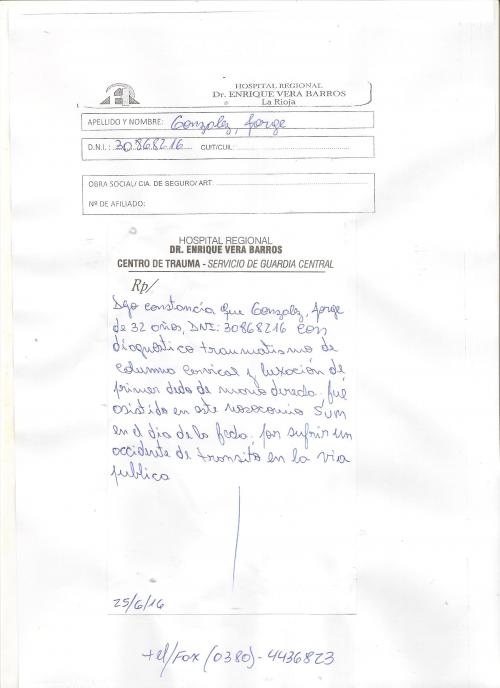 HOSPITAL REGIONAL
Dr. ENRIQUE VERA BARROS
La Rioja
APELLIDO Y NOMBRE: Gonzalez, Jorge
D.N.I.: 30868216 CUIT/CUIL:
OBRA SOCIAL/ CIA. DE SEGURO/ ART.
Nº DE AFILIADO:
HOSPITAL REGIONAL
DR. ENRIQUE VERA BARROS
CENTRO DE TRAUMA - SERVICIO DE GUARDIA CENTRAL
Rp/
Dejo constancia que Gonzalez, Jorge
de 32 años, DNI: 30868216 con
diagnostico traumatismo de
columna cervical y luxación de
primer dedo de mano derecha, fué
asistido en este nosocomio
en el dia de la fecha, por sufrir un
accidente de transito en la via
publica
25/6/16
tel/Fax (0380)-4436823